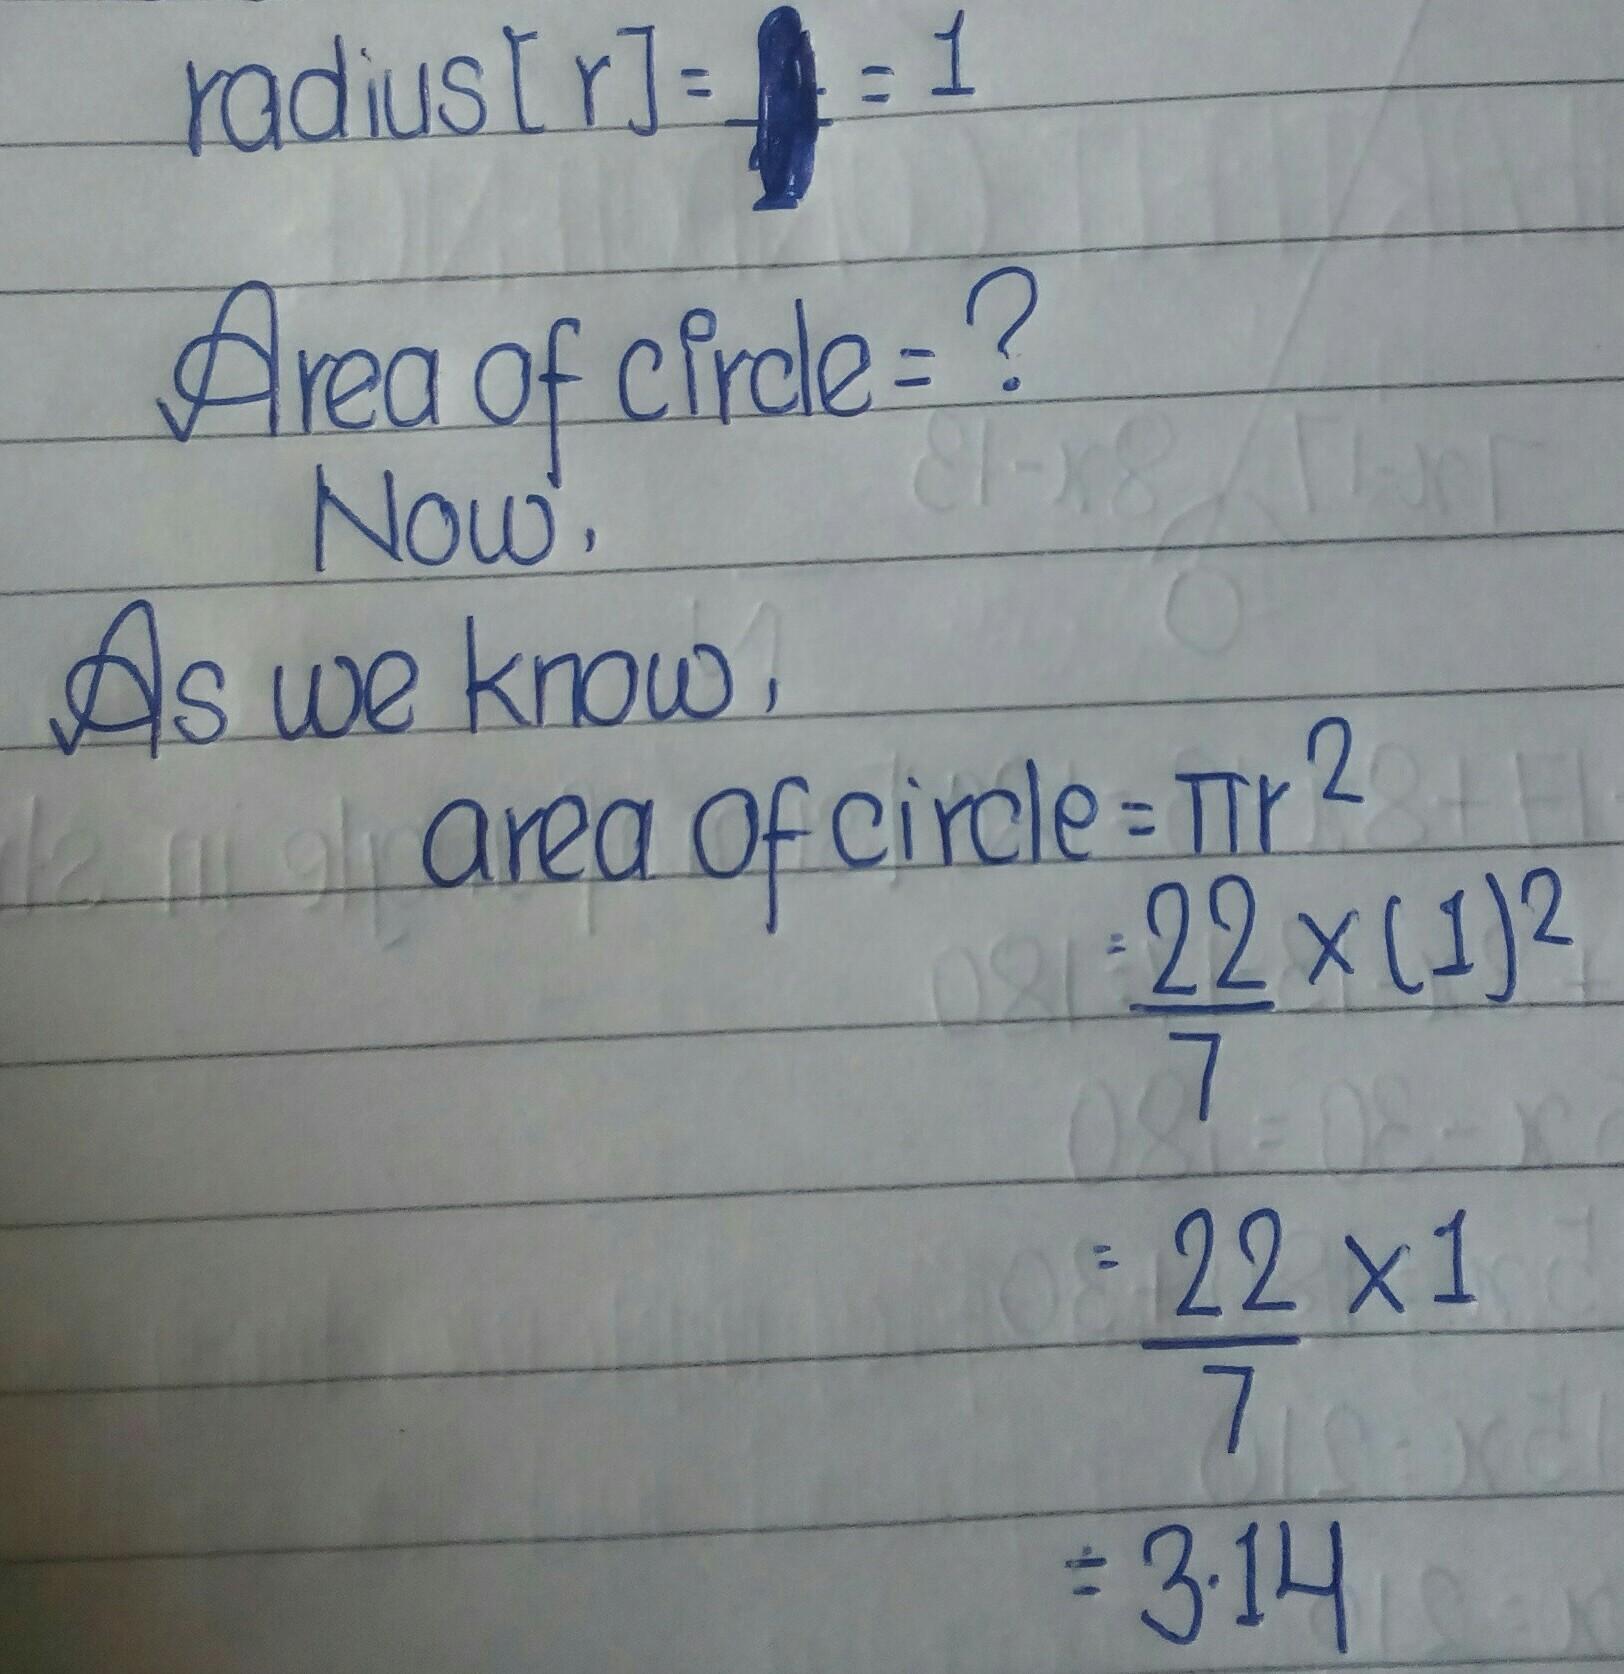 radius [r] = = 1
Area of circle = ?
Now,
As we know,
area of circle = πr²
= 22/7 × (1)²
= 22/7 × 1
= 3.14